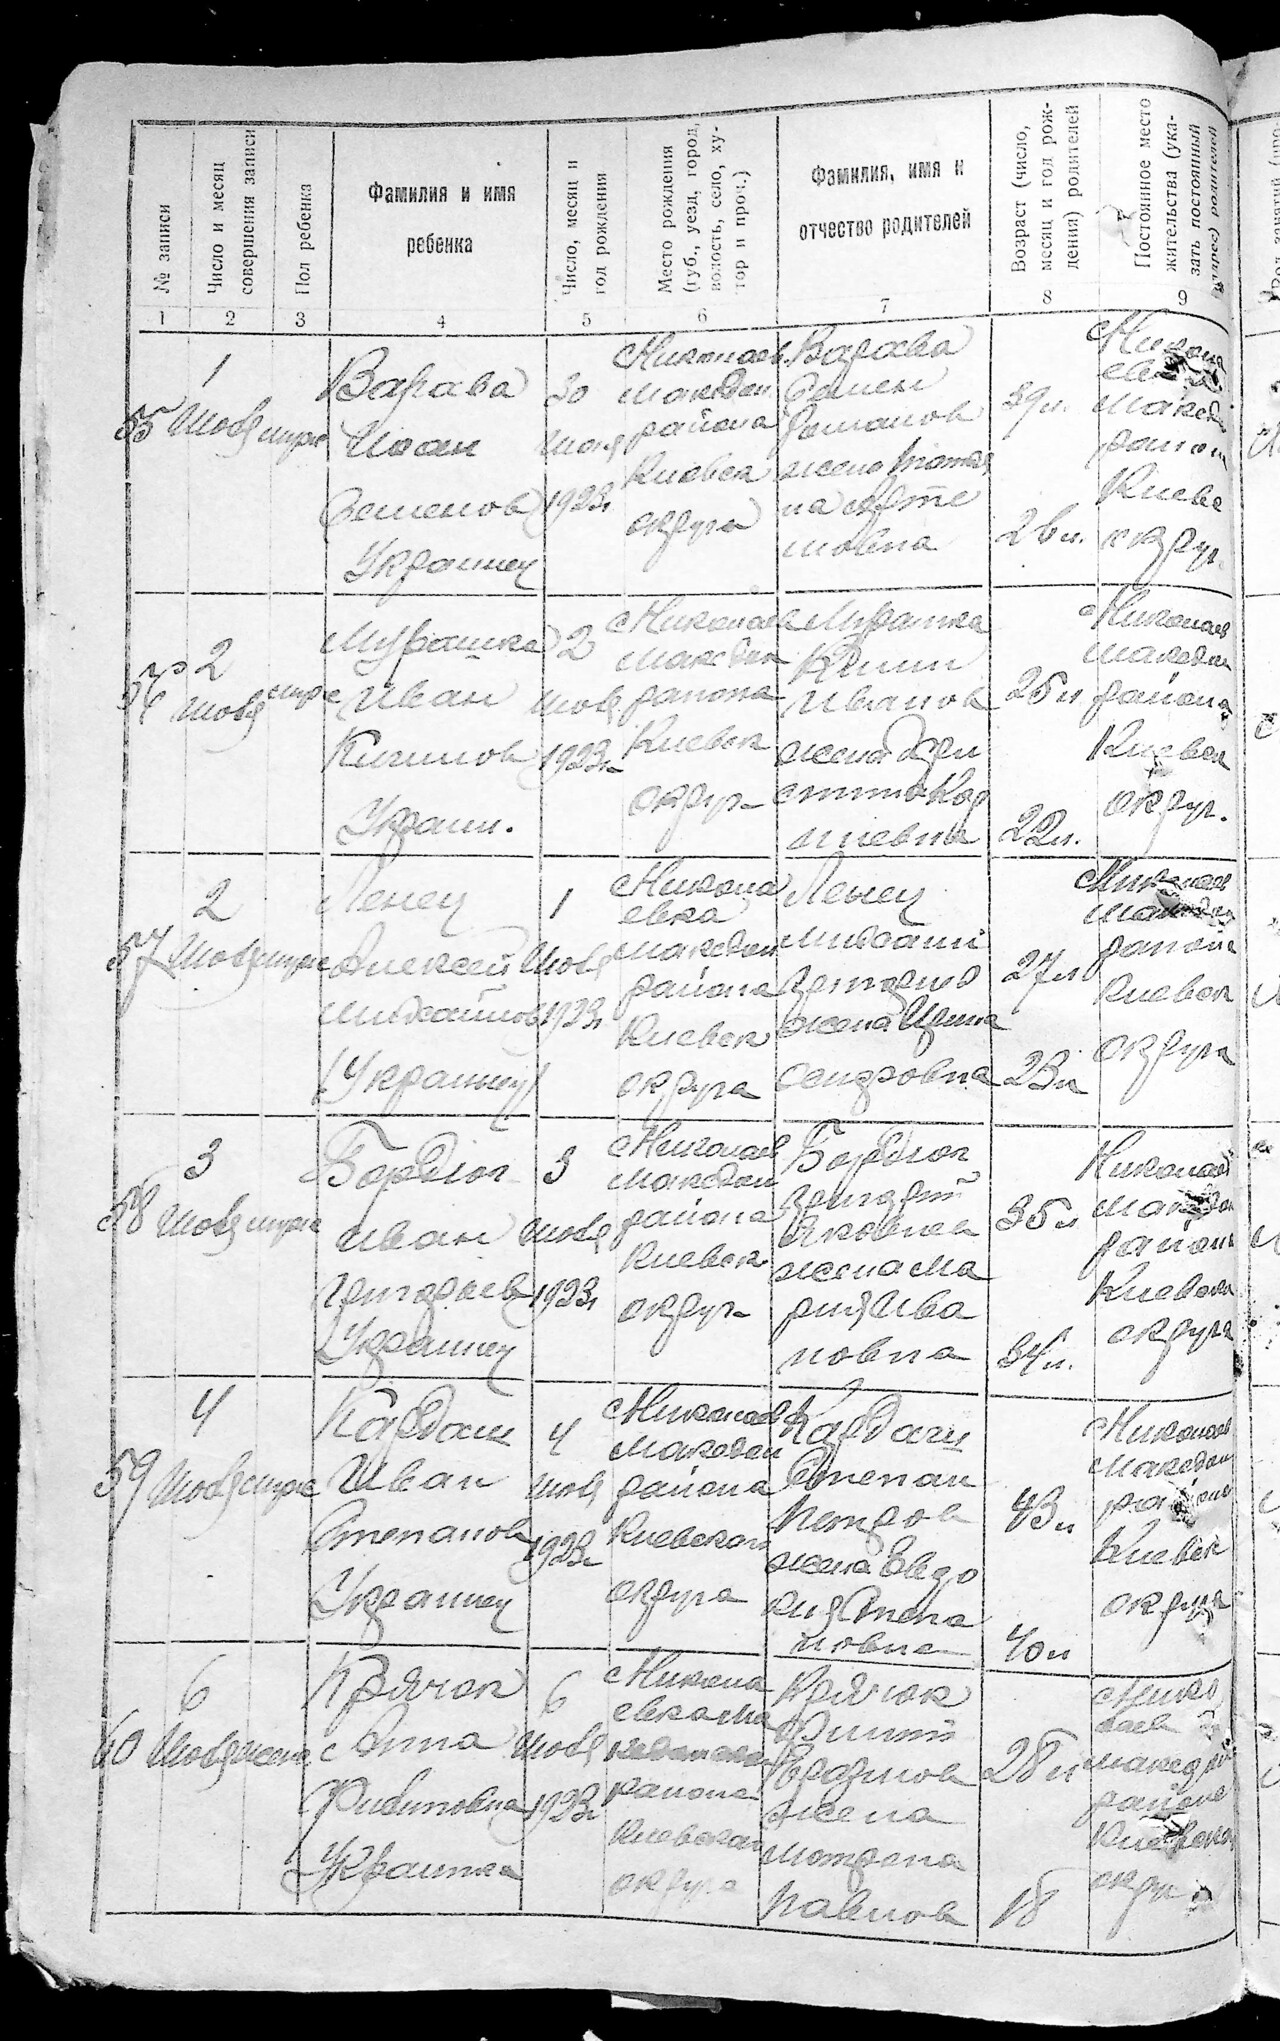 № записи
Число и месяц совершения записи
Пол ребенка
Фамилия и имя
ребенка
Число, месяц и
год рождения
Место рождения
(губ., уезд, город,
волость, село, ху-
тор и проч.)
Фамилия, имя и
отчество родителей
Возраст (число,
месяц и год рож-
дения) родителей
Постоянное место
жительства (ука-
зать постоянный
адрес) родителей
1 2 3 4 5 6 7 8 9
55
1
Июля
Варава
Иван
Семенов
Украинец
30
Июня
1923г
Николаев.
Македон
района
Киевск
округа
Варава
Семен
Романов
жена
39л.
26л.
Македо
Киевс
округ.
56
2
Июля
Мурашка
Иван
Украин.
2
Июля
1923г
Николаев
Македон
района
Киевск
округ
Мурашка
Иванов
жена
25л
22л.
Николаев
Македон
района
Киевск
округ.
57
2
Июля
Ленец
Алексей
Михайлов
(Украинец)
1
Июля
1923г
Никола
евка
Македон
района
Киевск
округа
Ленец
Михаил
жена Ирина
27л
23л
Николаев
Киевск
округа
58
3
Июля
Бордюг
Иван
Григорьев
Украинец
3
Июля
1923г
Николаев
Македон
района
Киевск
округ
Бордюг
Григорий
Яковлев
жена Ма
рия Ива
новна
35л
34л.
Николаев
Македон
Киевск
округа
59
4
Июля
Кардаш
Иван
Степанов
Украинец
4
Июля
1923г
Николаев
Македон
района
Киевской
округа
Кардаш
Степан
Петров
жена Евдо
кия Степа
новна
43л
40л
Николаев
Македон
Киевск
округа
60
6
Июля
Крячок
Анна
Филиповна
Украинка
6
Июля
1923г
Никола
евка Ма
района
Киевской
округа
Крячок
Филип
жена
Мотрена
Павлов
28л
18
Нико
лаев
района
округ